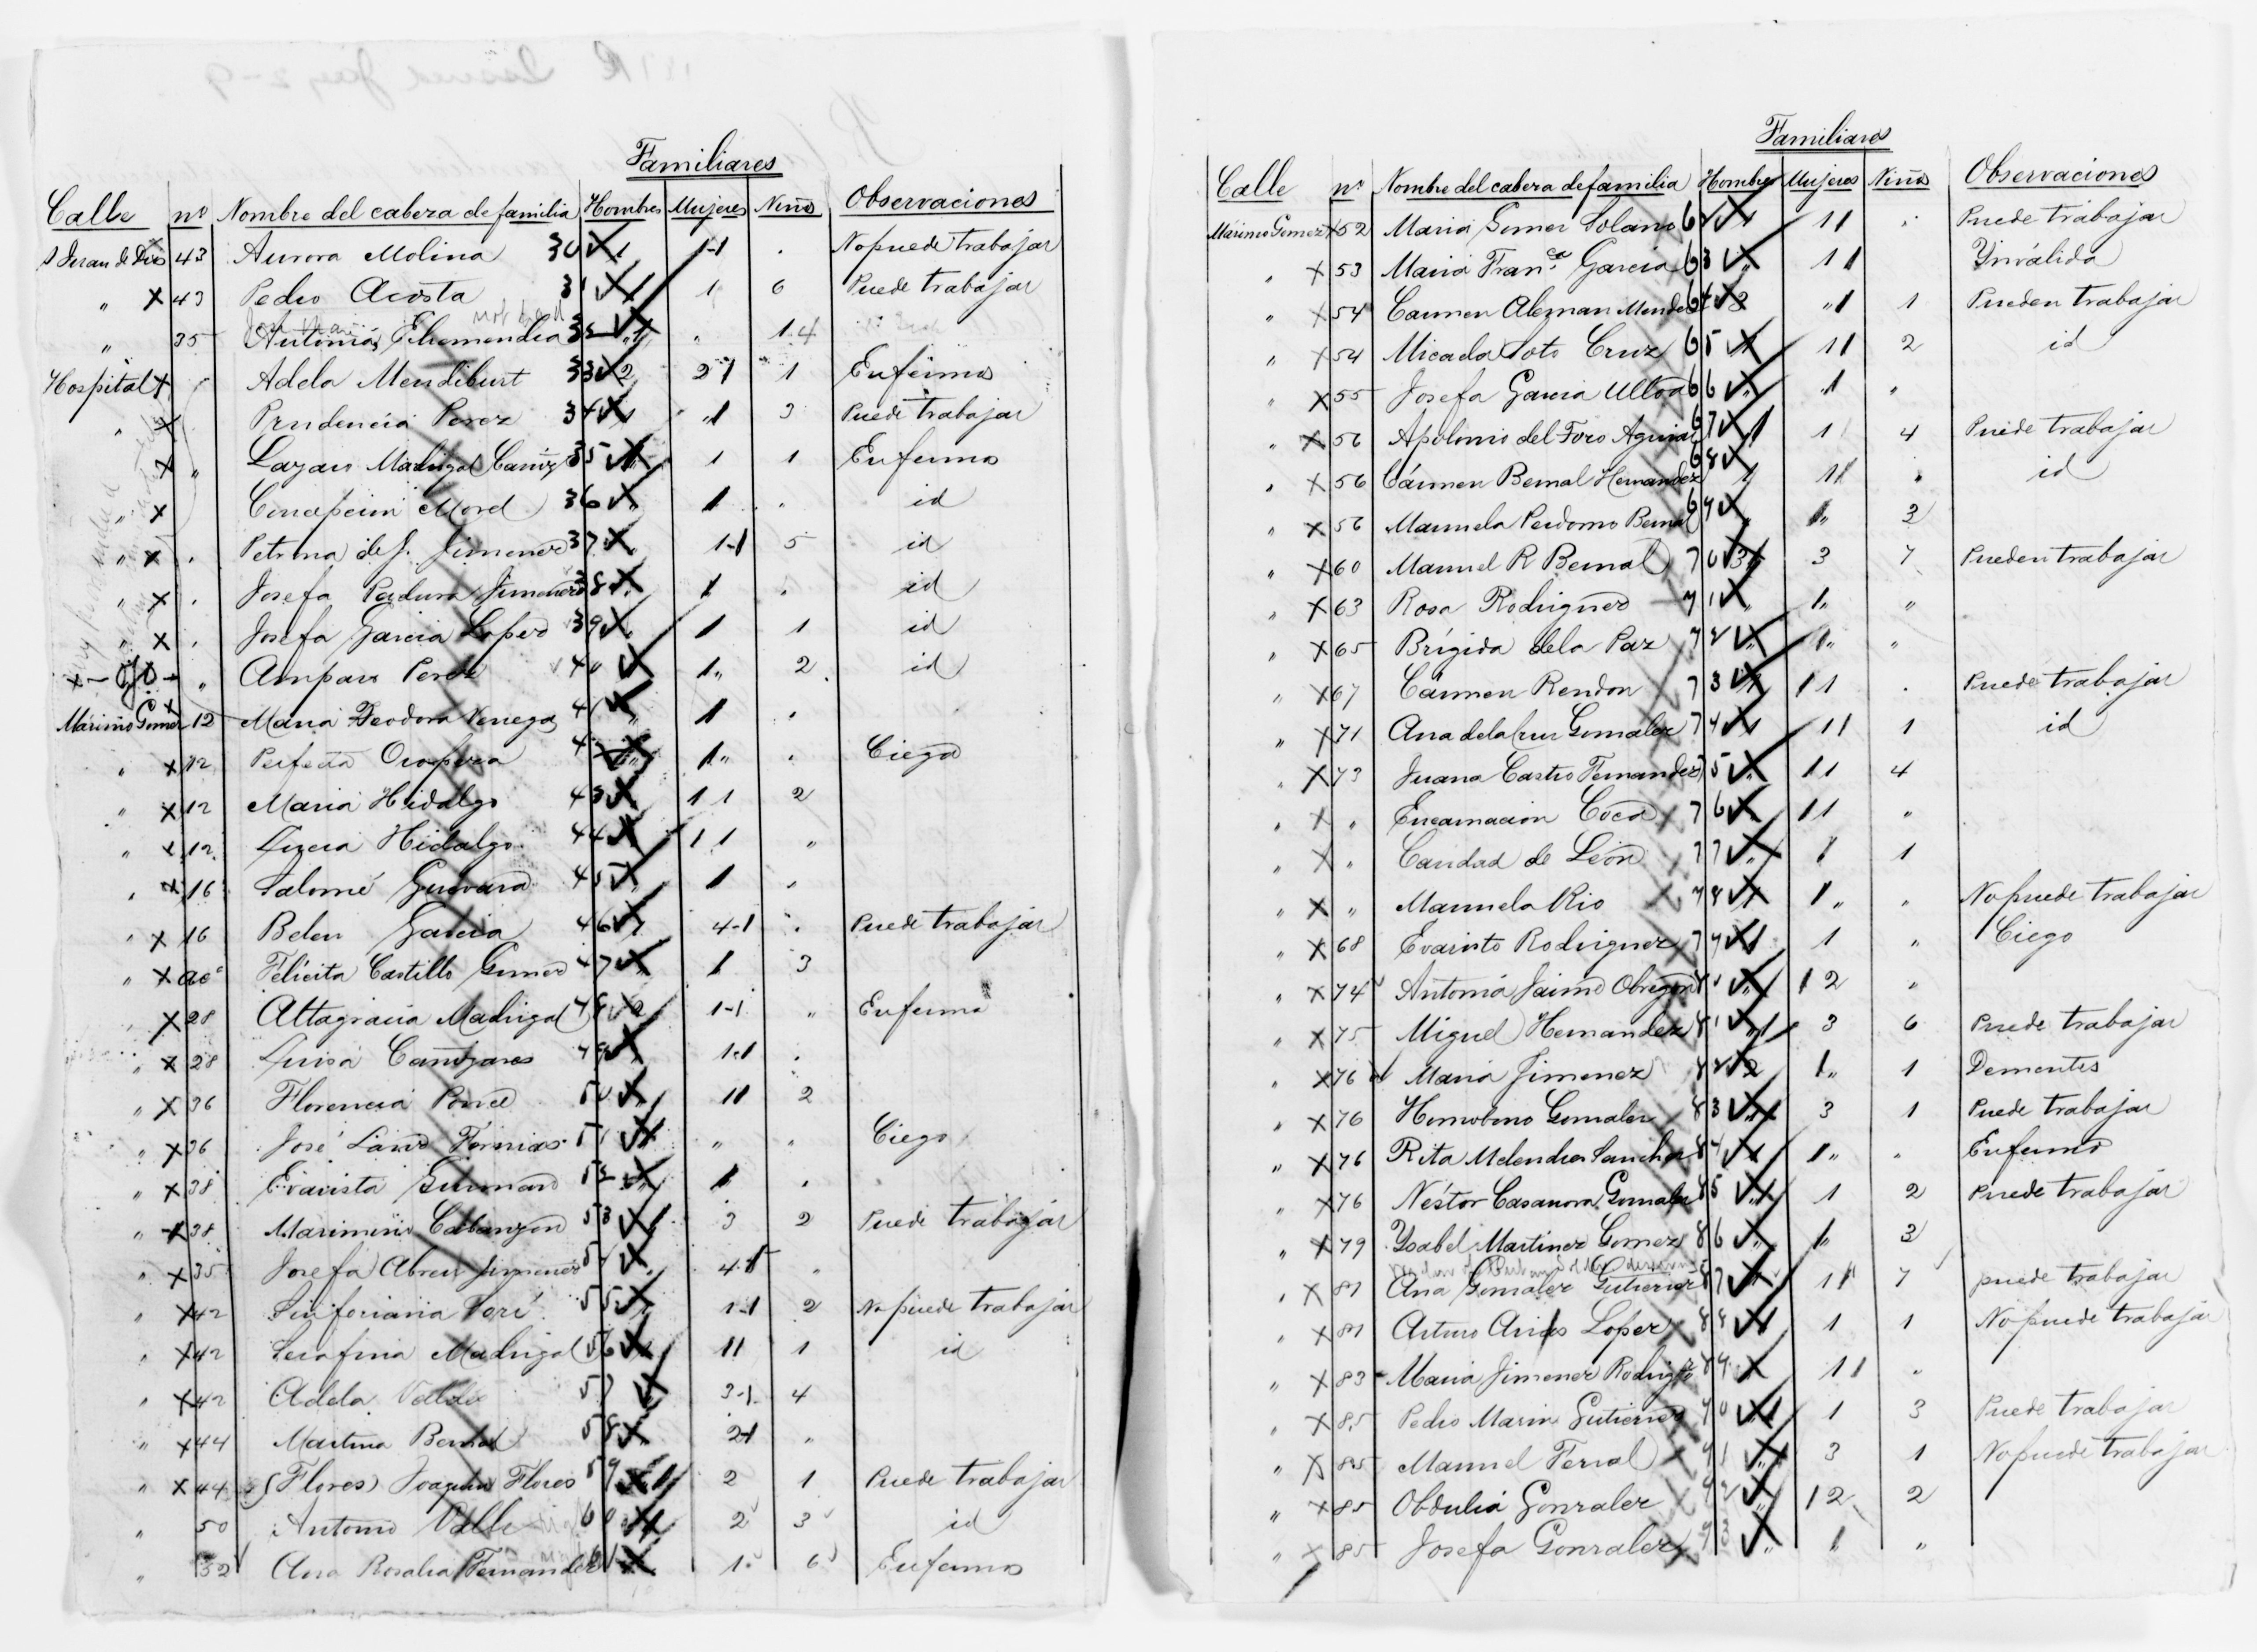 Familiares
Calle nº Nombre del cabeza de familia Hombres Mujeres Niños Observaciones
S Juan de Dios 43 Aurora Molina 30 1 1-1 . No puede trabajar
" X 43 Pedro Acosta 31 1 1 6 Puede trabajar
" 35 Antonia 32 1 " 14
Hospital X Adela Mendiburt 33 2 2 1 1 Enfermos
" X Prudencia Perez 34 1 "1 3 Puede trabajar
X " Lazaro Madrigal 35 1 1 1 Enfermos
" X Concepcion Morel 36 " 1 . id
" X . Petrona de J. Jimenez 37 " 1-1 5 id
" X . Josefa Padura Jimenez 38 " 1 . id
" X . Josefa Garcia Lopez 39 " 1 1 id
" Amparo Perez 40 " 1" 2 id
Máximo Gomez 12 Maria Teodora Venegas 41 " 1 .
" X 12 Perfecta Oropesa 4 " 1" . Ciega
" X 12 Maria Hidalgo 43 " 1 1 2
" X 12 Hidalgo 44 " 1 1 "
" X 16 Salomé Guevara 45 " 1 "
" X 16 Belen Garcia 46 1 4-1 . Puede trabajar
" X Felicita Castillo Gomez 47 " 1 3
" X 28 Altagracia Madrigal 48 2 1-1 " Enferma
" X 28 Luisa Cañizares 49 " 1-1 .
" X 36 Florencia Ponce 50 " 11 2
" X 36 José 51 1 " " Ciego
" X 38 Evarista 52 " 1 .
" X 38 Maximino Cabanzon 53 1 3 2 Puede trabajar
" X 35 Josefa Abreu Jimenez 54 " 4-1 "
" X 42 Sinforiana 55 " 1-1 2 No puede trabajar
" X 42 Serafina Madrigal 56 1 11 1 id
" X 42 Adela Valdes 57 3-1 4
" X 44 Martina Bernal 58 " 2-1 "
" X 44 (Flores) Joaquin Flores 59 1 2 1 Puede trabajar
" 50 Antonio Valle 60 1 2 3 id
" 52 Ana Rosalia Fernandez 61 1 6 Enfermos
Familiares
Calle nº Nombre del cabeza de familia Hombres Mujeres Niños Observaciones
Máximo Gomez X 52 Maria Gomez Solano 62 1 11 . Puede trabajar
" X 53 Maria Fran.ca Garcia 63 " 11 Ynválida
" X 54 Carmen Aleman Mendez 64 3 "1 1 Pueden trabajar
" X 54 Micaela Soto Cruz 65 1 11 2 id
" X 55 Josefa Garcia Ulloa 66 " 1 "
" X 56 Apolonio del Toro Aguiar 67 1 1 4 Puede trabajar
" X 56 Cármen Bernal Hernandez 68 1 11 " id
" X 56 Manuela Perdomo Bernal 69 " 1" 3
" X 60 Manuel R Bernal 70 3 3 7 Pueden trabajar
" X 63 Rosa Rodriguez 71 " 1" "
" X 65 Brígida de la Paz 72 " 1" "
" X 67 Cármen Rendon 73 1 11 . Puede trabajar
" X 71 Ana de la Cruz Gonzalez 74 1 11 1 id
" X 73 Juana Castro Fernandez 75 " 11 4
" X " Encarnacion Coca 76 " 11 "
" X " Caridad de León 77 " 1 1
" X " Manuela Rio 78 1 1" " No puede trabajar
" X 68 Evaristo Rodriguez 79 1 1 " Ciego
" X 74 Antonia Jaime Obregon 80 " 12 "
" X 75 Miguel Hernandez 81 1 3 6 Puede trabajar
" X 76 Maria Jimenez 82 2 1" 1 Dementes
" X 76 Homobono Gonzalez 83 1 3 1 Puede trabajar
" X 76 Rita Melendez Sanchez 84 1 1" " Enfermo
" X 76 Néstor Casanova Gonzalez 85 1 1 2 Puede trabajar
" X 79 Ysabel Martinez Gomez 86 " 1" 3
" X 81 Ana Gonzalez Gutierrez 87 1 11 7 puede trabajar
" X 81 Arturo Arias Lopez 88 1 1 1 No puede trabajar
" X 83 Maria Jimenez Rodrigz 89 " 11 "
" X 85 Pedro Marin Gutierrez 90 1 1 3 Puede trabajar
" X 85 Manuel Ferral 91 1 3 1 No puede trabajar
" X 85 Obdulia Gonzalez 92 " 12 2
" X 85 Josefa Gonzalez 93 " 1 "